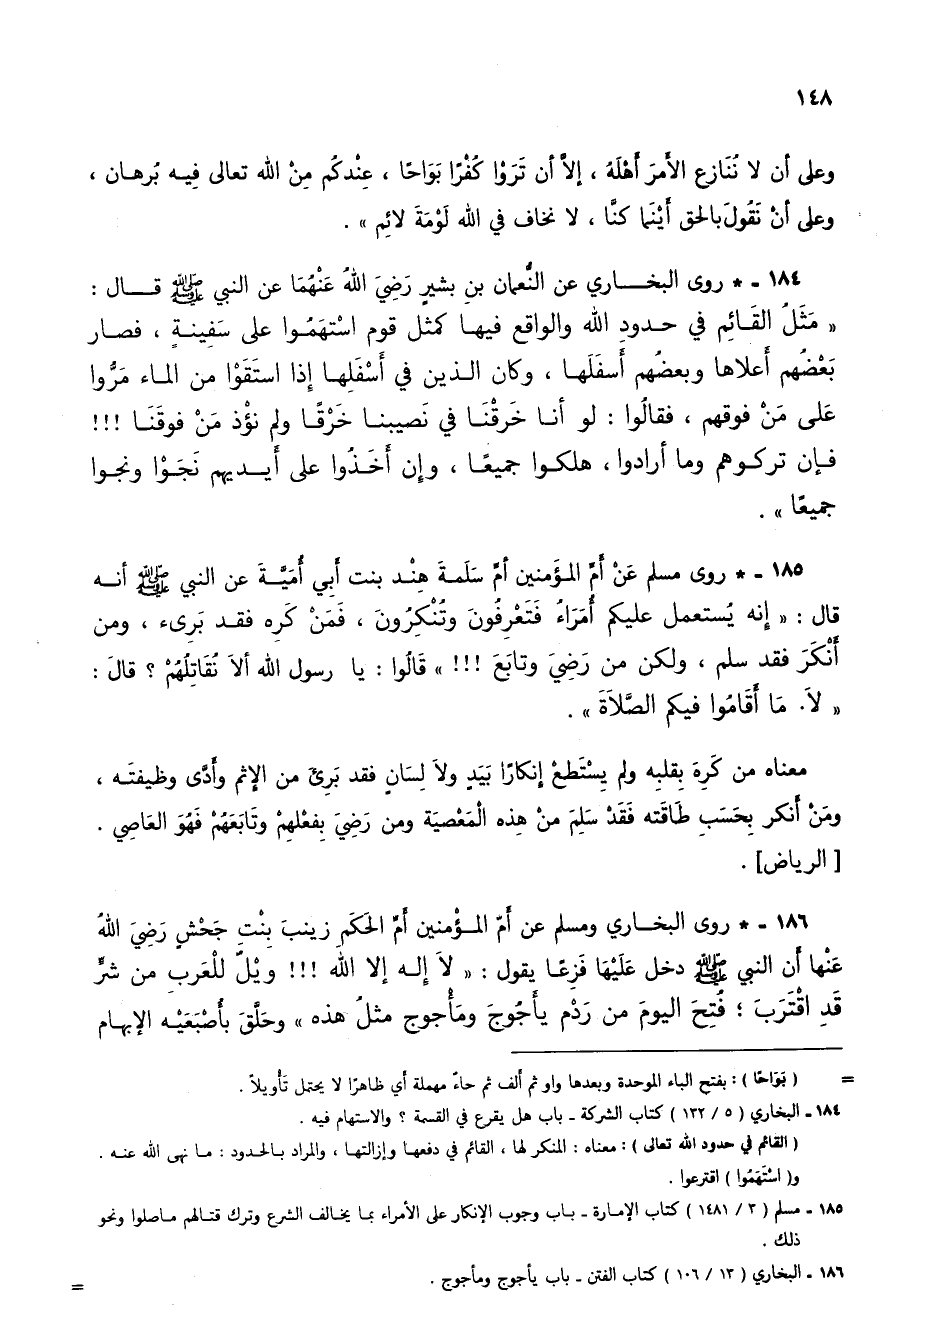 ١٤٨
وعلى أن لا نُنَازع الأمرَ أَهْلَهُ ، إلاَّ أن تَرَوْا كُفْرًا بَوَاحًا ، عِنْدكُم مِنْ الله تعالى فيـه بُرهـان ،
وعلى أنْ نَقُولَ بالحق أَيْنَما كنَّا ، لا نخاف في الله لَوْمَةَ لائِم » .
١٨٤ ـ * روى البخـــاري عن النُّعمان بنِ بشيرٍ رَضِيَ اللهُ عَنْهُمَا عن النبي ﷺ قــال :
« مَثَلُ القَائِمِ في حـدودِ الله والواقع فيهـا كمثل قوم اسْتَهَمُوا على سَفِينـةٍ ، فصـار
بَعْضُهم أعلاها وبعضُهم أسفَلَهـا ، وكان الـذين في أسْفَلهـا إذا استَقَوْا من المـاء مَرُّوا
عَلى مَنْ فوقهم ، فقالُوا : لو أنـا خَرقْنَـا في نَصيبنـا خَرْقًـا ولم نؤْذ مَنْ فوقَنَـا !!!
فـإن تركـوهم ومـا أرادوا ، هلكـوا جميعًـا ، وإن أَخَـذُوا على أيـديهم نَجَـوْا ونجـوا
جميعًا » .
١٨٥ ـ * روى مسلم عَنْ أُمِّ المـؤمنين أمِّ سَلَمـةَ هِنْـد بنت أبي أُمَيَّـةَ عن النبي ﷺ أنــه
قال : « إنه يُستعمل عليكم أُمَرَاءُ فَتَعْرِفُونَ وتُنْكِرُونَ ، فَمَنْ كَرِه فقـد بَرِىء ، ومن
أَنْكَرَ فقد سلم ، ولكن من رَضِيَ وتابَعَ !!! » قَالُوا : يا رسول الله ألاَ نُقَاتِلُهُمْ ؟ قالَ :
« لاَ. مَا أَقَامُوا فيكم الصَّلاَةَ » .
معناه من كَرِهَ بِقلبِه ولم يسْتَطعْ إنكارًا بَيَدٍ ولاَ لِسَانٍ فقد بَرِئَ من الإثم وأدَّى وظيفتَـه ،
ومَنْ أنكر بِحَسَبِ طَاقَته فَقَدْ سَلِمَ منْ هذه الْمَعْصيَة ومن رَضِيَ بِفعْلِهمْ وتَابَعَهُمْ فَهُوَ العَاصِي .
[ الرياض] .
١٨٦ ـ * روى البخـاري ومسلم عن أمّ المـؤْمنين أمِّ الحكَم زينبَ بِنْتِ جَحْشٍ رَضِيَ اللهُ
عَنْها أن النبي ﷺ دخل عَلَيْهَا فَزِعًـا يقول : « لاَ إلـه إلا الله !!! ويْلٌ للْعَرب من شرٍّ
قَدِ اقْتَرَبَ ؛ فُتِحَ اليومَ من رَدْم يأجُوجَ ومأْجوج مثلُ هذه » وحَلَّق بأُصْبَعَيْـه الإبهام
= ( بَوَاحًا ) : بفتح الباء الموحدة وبعدها واو ثم ألف ثم حاءً مهملة أي ظاهرًا لا يحتمل تَأويلاً .
١٨٤ ـ البخاري ( ٥ / ١٣٢ ) كتاب الشركة ـ باب هل يقرع في القسمة ؟ والاستهام فيه .
( القائم في حدود الله تعالى ) : معناه : المنكر لها ، القائم في دفعهـا وإزالتهـا ، والمراد بـالحـدود : مـا نهى الله عنـه .
و( اسْتَهَمُوا ) اقترعوا .
١٨٥ ـ مسلم ( ٣ / ١٤٨١ ) كتاب الإمارة ـ بـاب وجوب الإنكار على الأمراء بمـا يخـالف الشرع وترك قتـالهم مـاصلوا ونحو
ذلك .
١٨٦ ـ البخاري ( ١٣ / ١٠٦ ) كتاب الفتن ـ باب يأجوج ومأجوج .
=